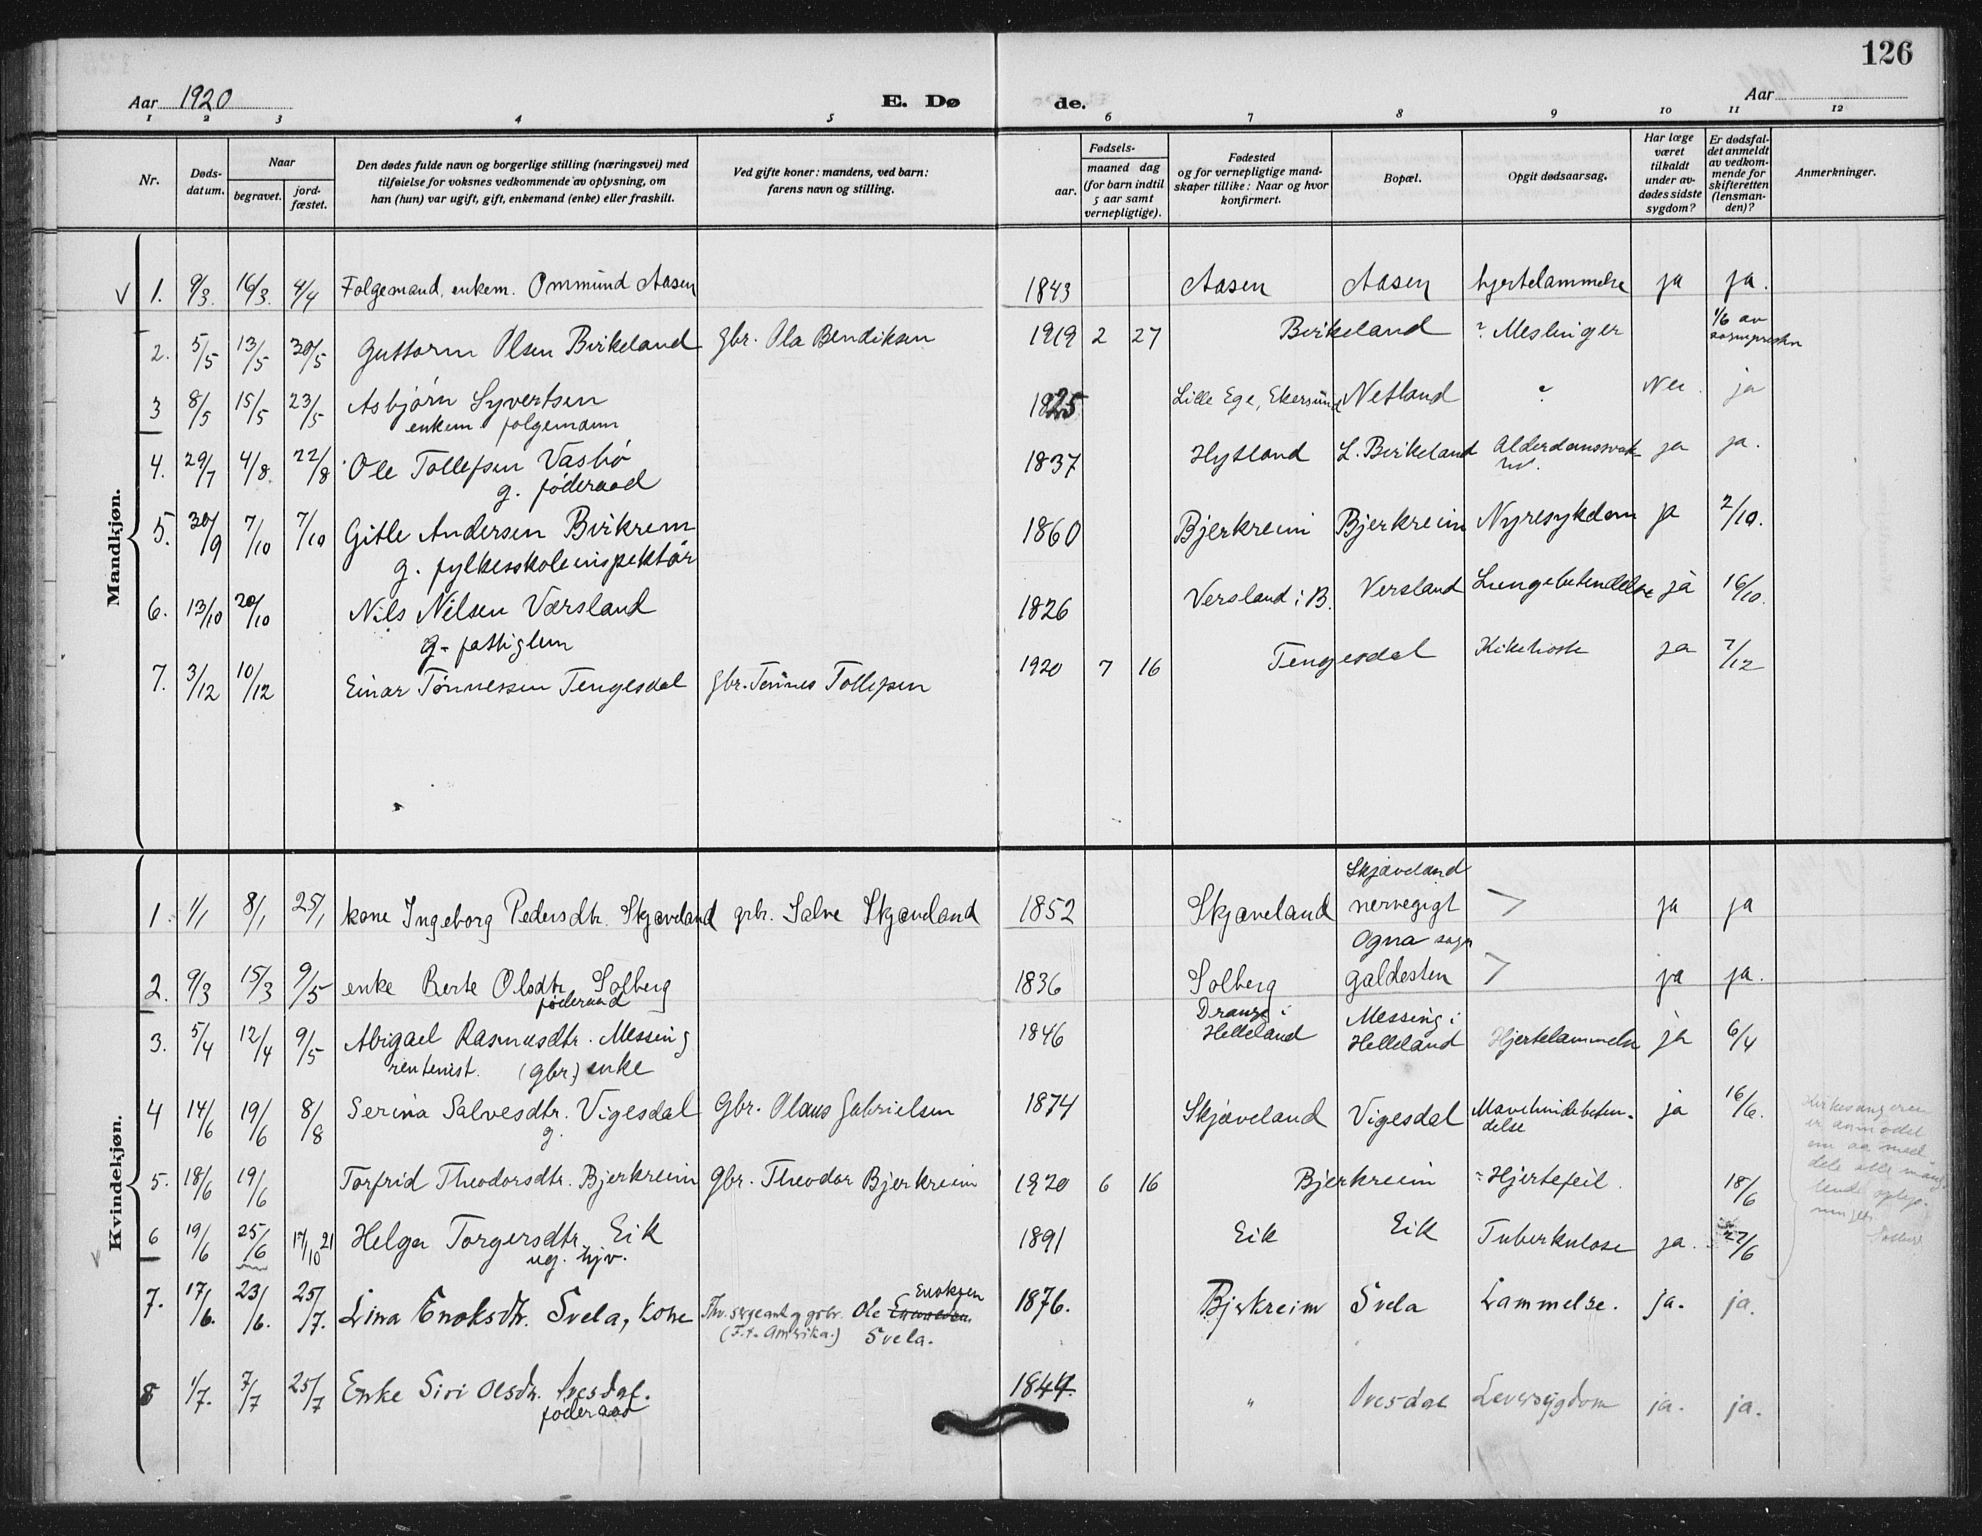 126
Aar 1920
E. Dø
de.
Aar
1 2 3 4 5 6 7 8 9 10 11 12
Nr.
Døds-
datum.
Naar
begravet.
jord-
fæstet.
Den dødes fulde navn og borgerlige stilling (næringsvei) med
tilføielse for voksnes vedkommende av oplysning, om
han (hun) var ugift, gift, enkemand (enke) eller fraskilt.
Ved gifte koner: mandens, ved barn:
farens navn og stilling.
Fødsels-
aar.
maaned dag
(for barn indtil
5 aar samt
vernepligtige).
Fødested
og for vernepligtige mand-
skaper tillike: Naar og hvor
konfirmert.
Bopæl.
Opgit dødsaarsag.
Har læge
været
tilkaldt
under av-
dødes sidste
sygdom?
Er dødsfal-
det anmeldt
av vedkom-
mende for
skifteretten
(lensman-
den)?
Anmerkninger.
Mandkjøn.
1. 9/3. 16/3. 4/4 Folgemand, enkem. Ommund Aasen 1843 Aasen Aasen hjertelammelse ja ja.
2. 5/5 13/5 30/5 Guttorm Olsen Birkeland gbr. Ola Bendiksen 1919 2 27 Birkeland ? Meslinger 1/6 av
sognepresten
3 8/5 15/5 23/5 Asbjørn Syvertsen 1825 Lille Ege, Ekersund Netland ? Nei. ja
enkem folgemann
4. 29/7 4/8. 22/8 Ole Tollefsen Vasbø 1837 Hytland L. Birkeland Alderdomssvak-
het. ja ja.
g. føderaad
5. 30/9 7/10 7/10 Gitle Andersen Birkrem 1860 Bjerkreim Bjerkreim Nyresykdom ja 2/10.
g. fylkesskoleinspektør
6. 13/10 20/10 Nils Nilsen Værsland 1826 Versland i B. Versland Lungebetendelse ja 16/10.
g. fattiglem
7. 3/12 10/12 Einar Tønnessen Tengesdal gbr. Tønnes Tollefsen 1920 7 16 Tengesdal Kikehoste ja 7/12
Kvindekjøn.
1. 1/1 8/1 25/1 kone Ingeborg Pedersdtr. Skjæveland gbr. Salve Skjæveland 1852 Skjæveland Skjæveland
nervegigt ja ja
2. 9/3 15/3 9/5 enke Berte Olsdtr. Solberg 1836 Solberg Ogna sogn
galdesten ja ja.
føderaad
3. 5/4 12/4 9/5 Abigael Rasmusdtr. Messing 1846 Drange i
Helleland Messing i
Helleland Hjertelammelse ja 6/4
rentenist. (gbr.) enke
4 14/6 19/6 8/8 Serina Salvesdtr. Vigesdal Gbr. Olaus Gabrielsen 1874 Skjæveland Vigesdal Mavehindebeten-
delse ja 16/6.
g.
5. 18/6 19/6 Torfrid Theodorsdtr. Bjerkreim gbr. Theodor Bjerkreim 1920 6 16 Bjerkreim ? Hjertefeil. 18/6
6 19/6 25/6 17/10 21 Helga Torgersdtr. Eik 1891 Eik Eik Tuberkulose ja. 27/6
ug. hjv.
7. 17/6. 23/6. 25/7. Lina Enoksdtr. Svela, kone Fhv. sergeant og gbr. Ole Enoksen
(F.t. Amerika.) Svela. 1876. Bjerkreim Svela Lammelse. ja. ja.
8 1/7. 7/7 25/7 Enke Siri Olsdtr. Ivesdal. 1844. " Ivesdal Leversygdom ja. ja.
føderaad
Kirkesangeren
er anmodet
om aa med-
dele alle mang-
lende oplys-